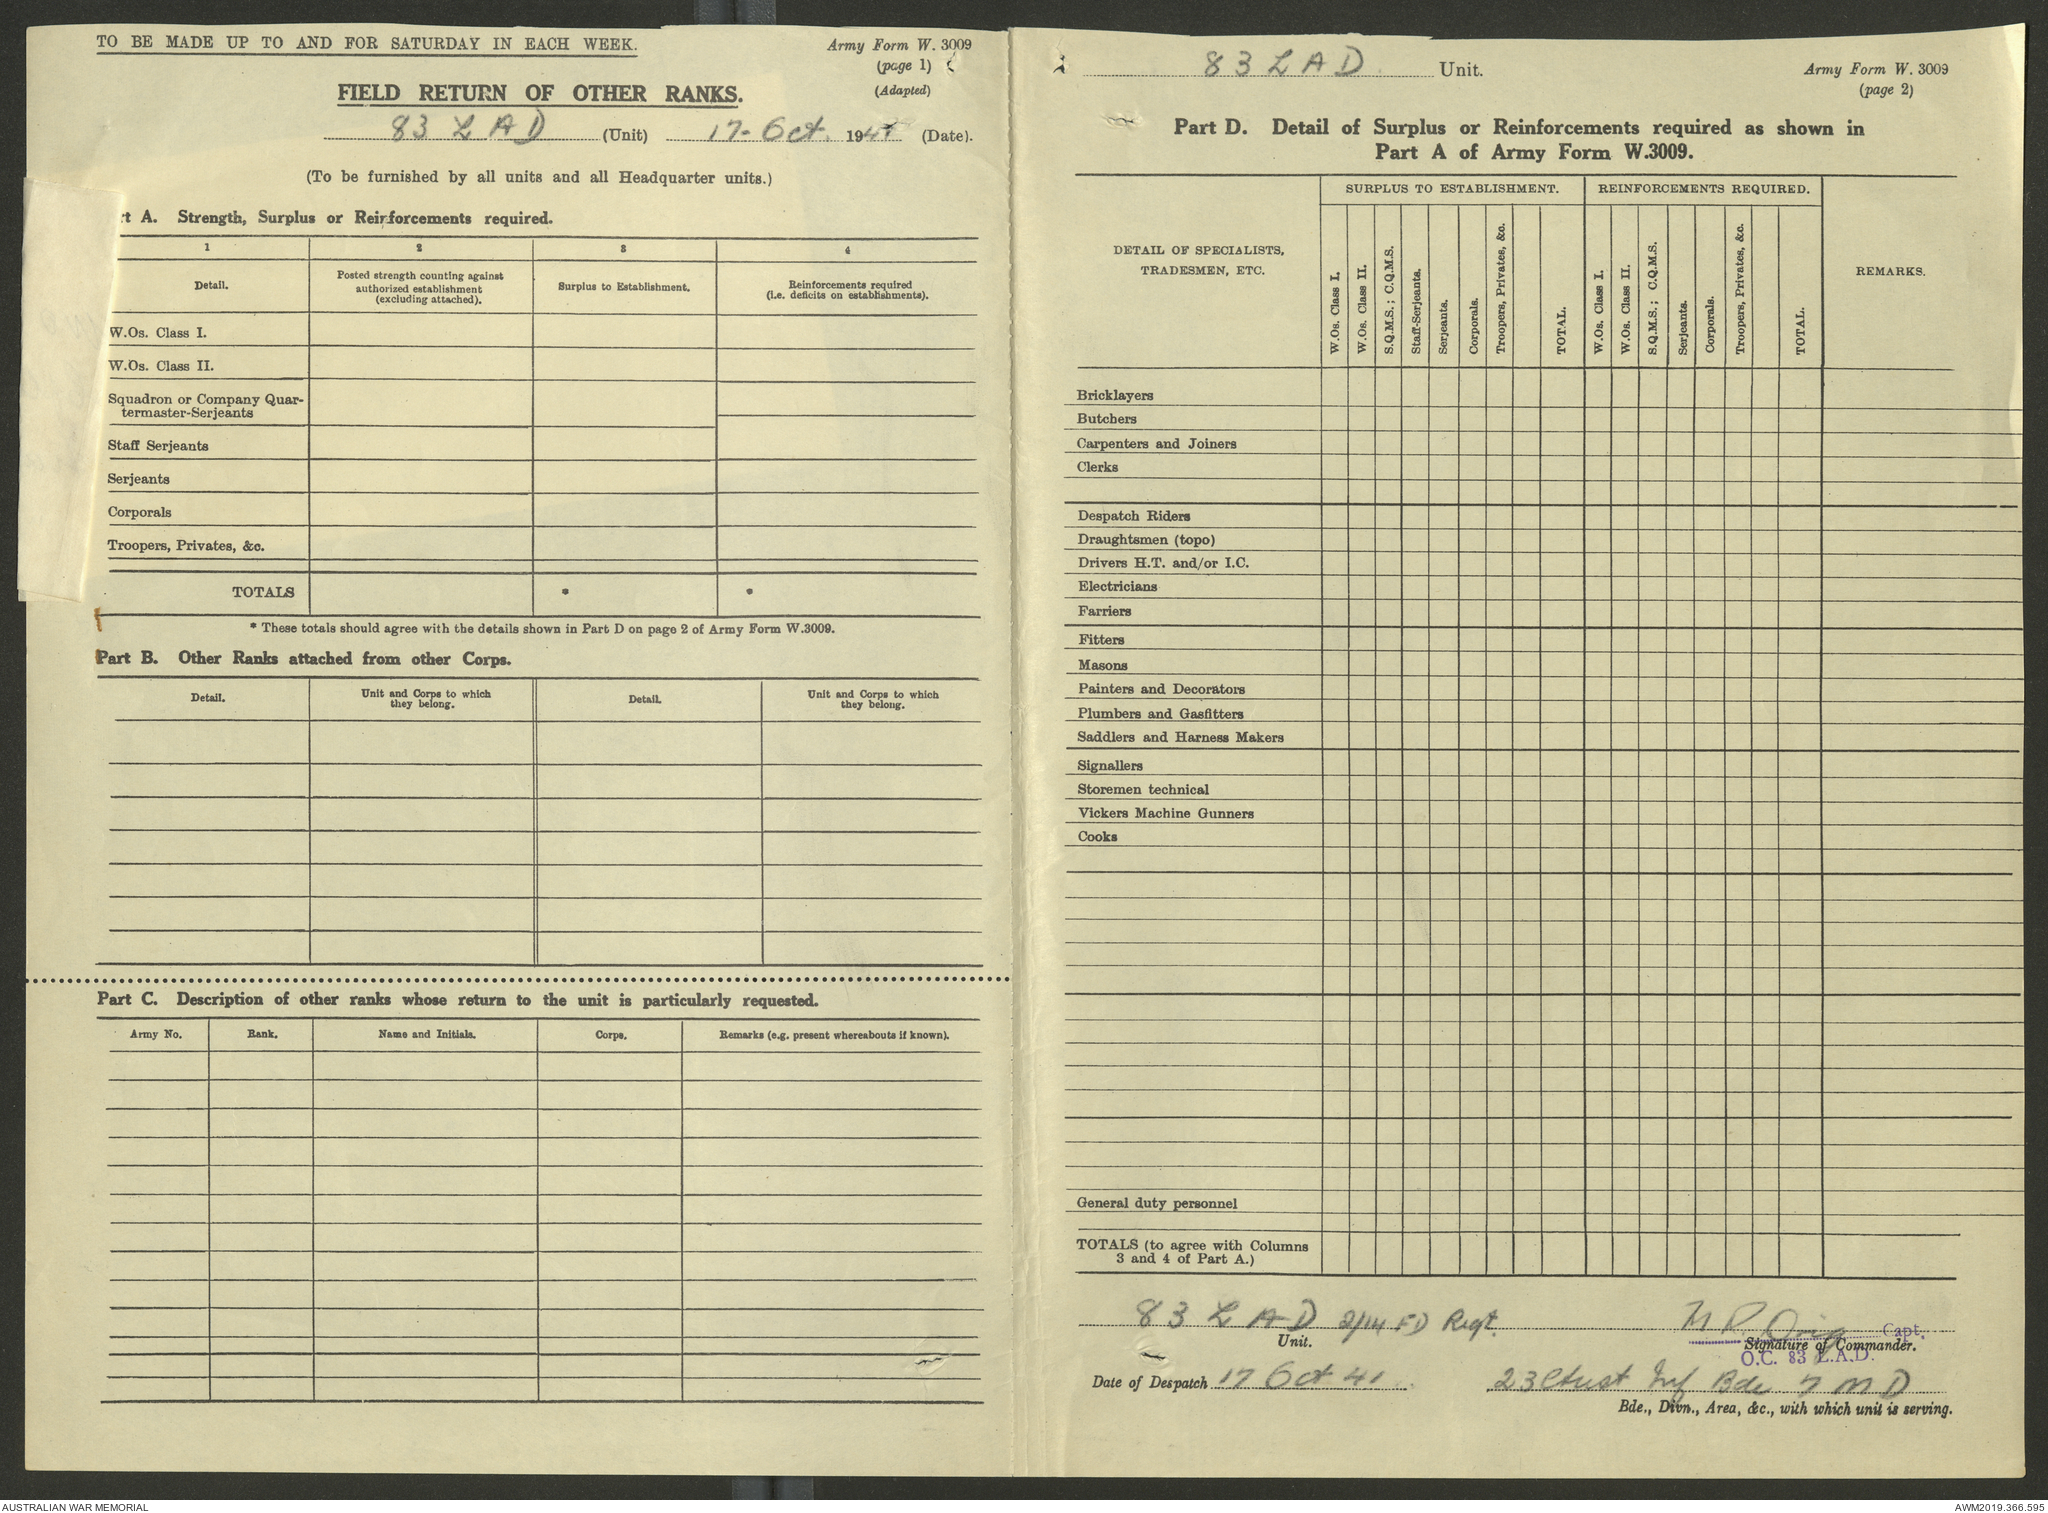 TO BE MADE UP TO AND FOR SATURDAY IN EACH WEEK.
Army Form W. 3009
(page 1)
(Adapted)
FIELD RETURN OF OTHER RANKS.
83 L A D (Unit) 17-Oct. 1941 (Date).
(To be furnished by all units and all Headquarter units.)
rt A. Strength, Surplus or Reinforcements required.
1 2 3 4
Detail.
Posted strength counting against
authorized establishment
(excluding attached).
Surplus to Establishment.
Reinforcements required
(i.e. deficits on establishments).
W.Os. Class I.
W.Os. Class II.
Squadron or Company Quar-
termaster-Serjeants
Staff Serjeants
Serjeants
Corporals
Troopers, Privates, &c.
TOTALS * *
* These totals should agree with the details shown in Part D on page 2 of Army Form W.3009.
Part B. Other Ranks attached from other Corps.
Detail.
Unit and Corps to which
they belong.
Detail.
Unit and Corps to which
they belong.
Part C. Description of other ranks whose return to the unit is particularly requested.
Army No. Rank. Name and Initials. Corps. Remarks (e.g. present whereabouts if known).
83 L A D Unit.
Army Form W. 3009
(page 2)
Part D. Detail of Surplus or Reinforcements required as shown in
Part A of Army Form W.3009.
DETAIL OF SPECIALISTS,
TRADESMEN, ETC.
SURPLUS TO ESTABLISHMENT.
W.Os. Class I.
W.Os. Class II.
S.Q.M.S.; C.Q.M.S.
Staff-Serjeants.
Serjeants.
Corporals.
Troopers, Privates, &c.
TOTAL.
REINFORCEMENTS REQUIRED.
W.Os. Class I.
W.Os. Class II.
S.Q.M.S.; C.Q.M.S.
Serjeants.
Corporals.
Troopers, Privates, &c.
TOTAL.
REMARKS.
Bricklayers
Butchers
Carpenters and Joiners
Clerks
Despatch Riders
Draughtsmen (topo)
Drivers H.T. and/or I.C.
Electricians
Farriers
Fitters
Masons
Painters and Decorators
Plumbers and Gasfitters
Saddlers and Harness Makers
Signallers
Storemen technical
Vickers Machine Gunners
Cooks
General duty personnel
TOTALS (to agree with Columns
3 and 4 of Part A.)
83 L A D 2/14 FD Regt.
Unit.
Capt.
Signature of Commander.
O.C. 83 L.A.D.
Date of Despatch 17 Oct 41
23 Aust Inf Bde 7 M D
Bde., Divn., Area, &c., with which unit is serving.
AUSTRALIAN WAR MEMORIAL
AWM2019.366.595